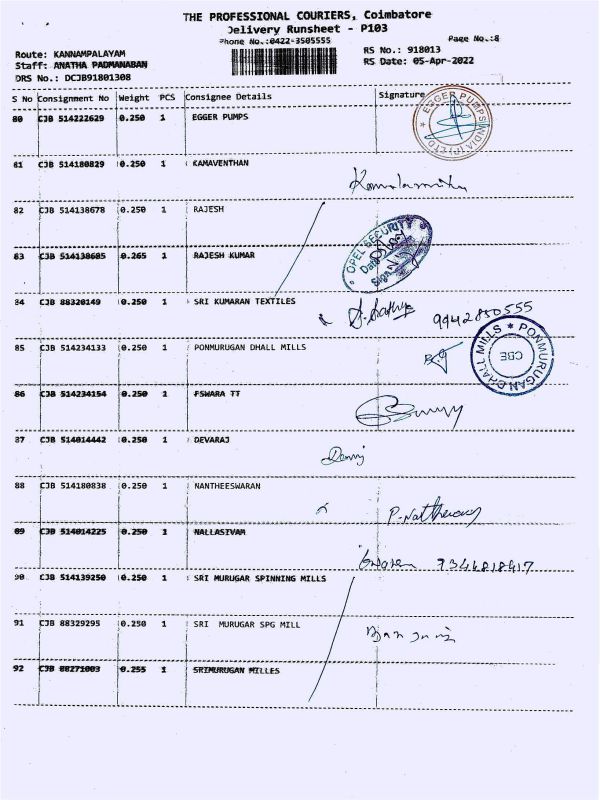 THE PROFESSIONAL COURIERS, Coimbatore
Delivery Runsheet - P103
Phone No.:0422-3505555
Page No.:8
Route: KANNAMPALAYAM
RS No.: 918013
Staff: ANATHA PADMANABAN
RS Date: 05-Apr-2022
DRS No.: DCJB91801308
S No Consignment No Weight PCS Consignee Details Signature
80 CJB 514222629 0.250 1 EGGER PUMPS
EGGER PUMPS INDIA (P) LTD
81 CJB 514180829 0.250 1 KAMAVENTHAN
82 CJB 514138678 0.250 1 RAJESH
83 CJB 514138685 0.265 1 RAJESH KUMAR
OPEL SECURITY
Date
Sign
84 CJB 88320149 0.250 1 SRI KUMARAN TEXTILES
S. Sathya 9942850555
85 CJB 514234133 0.250 1 PONMURUGAN DHALL MILLS
PONMURUGAN DHALL MILLS
CBE
86 CJB 514234154 0.250 1 FSWARA TT
87 CJB 514014442 0.250 1 DEVARAJ
88 CJB 514180838 0.250 1 NANTHEESWARAN
89 CJB 514014225 0.250 1 NALLASIVAM
90 CJB 514139250 0.250 1 SRI MURUGAR SPINNING MILLS
91 CJB 88329295 0.250 1 SRI MURUGAR SPG MILL
92 CJB 88271003 0.255 1 SRIMURUGAN MILLES